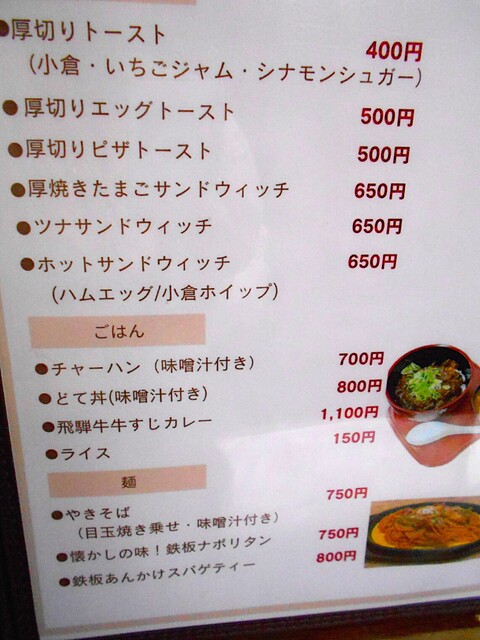 ●厚切りトースト 400円
(小倉・いちごジャム・シナモンシュガー)
●厚切りエッグトースト 500円
●厚切りピザトースト 500円
●厚焼きたまごサンドウィッチ 650円
●ツナサンドウィッチ 650円
●ホットサンドウィッチ 650円
(ハムエッグ/小倉ホイップ)
ごはん
●チャーハン(味噌汁付き) 700円
●どて丼(味噌汁付き) 800円
●飛騨牛牛すじカレー 1,100円
●ライス 150円
麺
●やきそば 750円
(目玉焼き乗せ・味噌汁付き)
●懐かしの味!鉄板ナポリタン 750円
●鉄板あんかけスパゲティー 800円